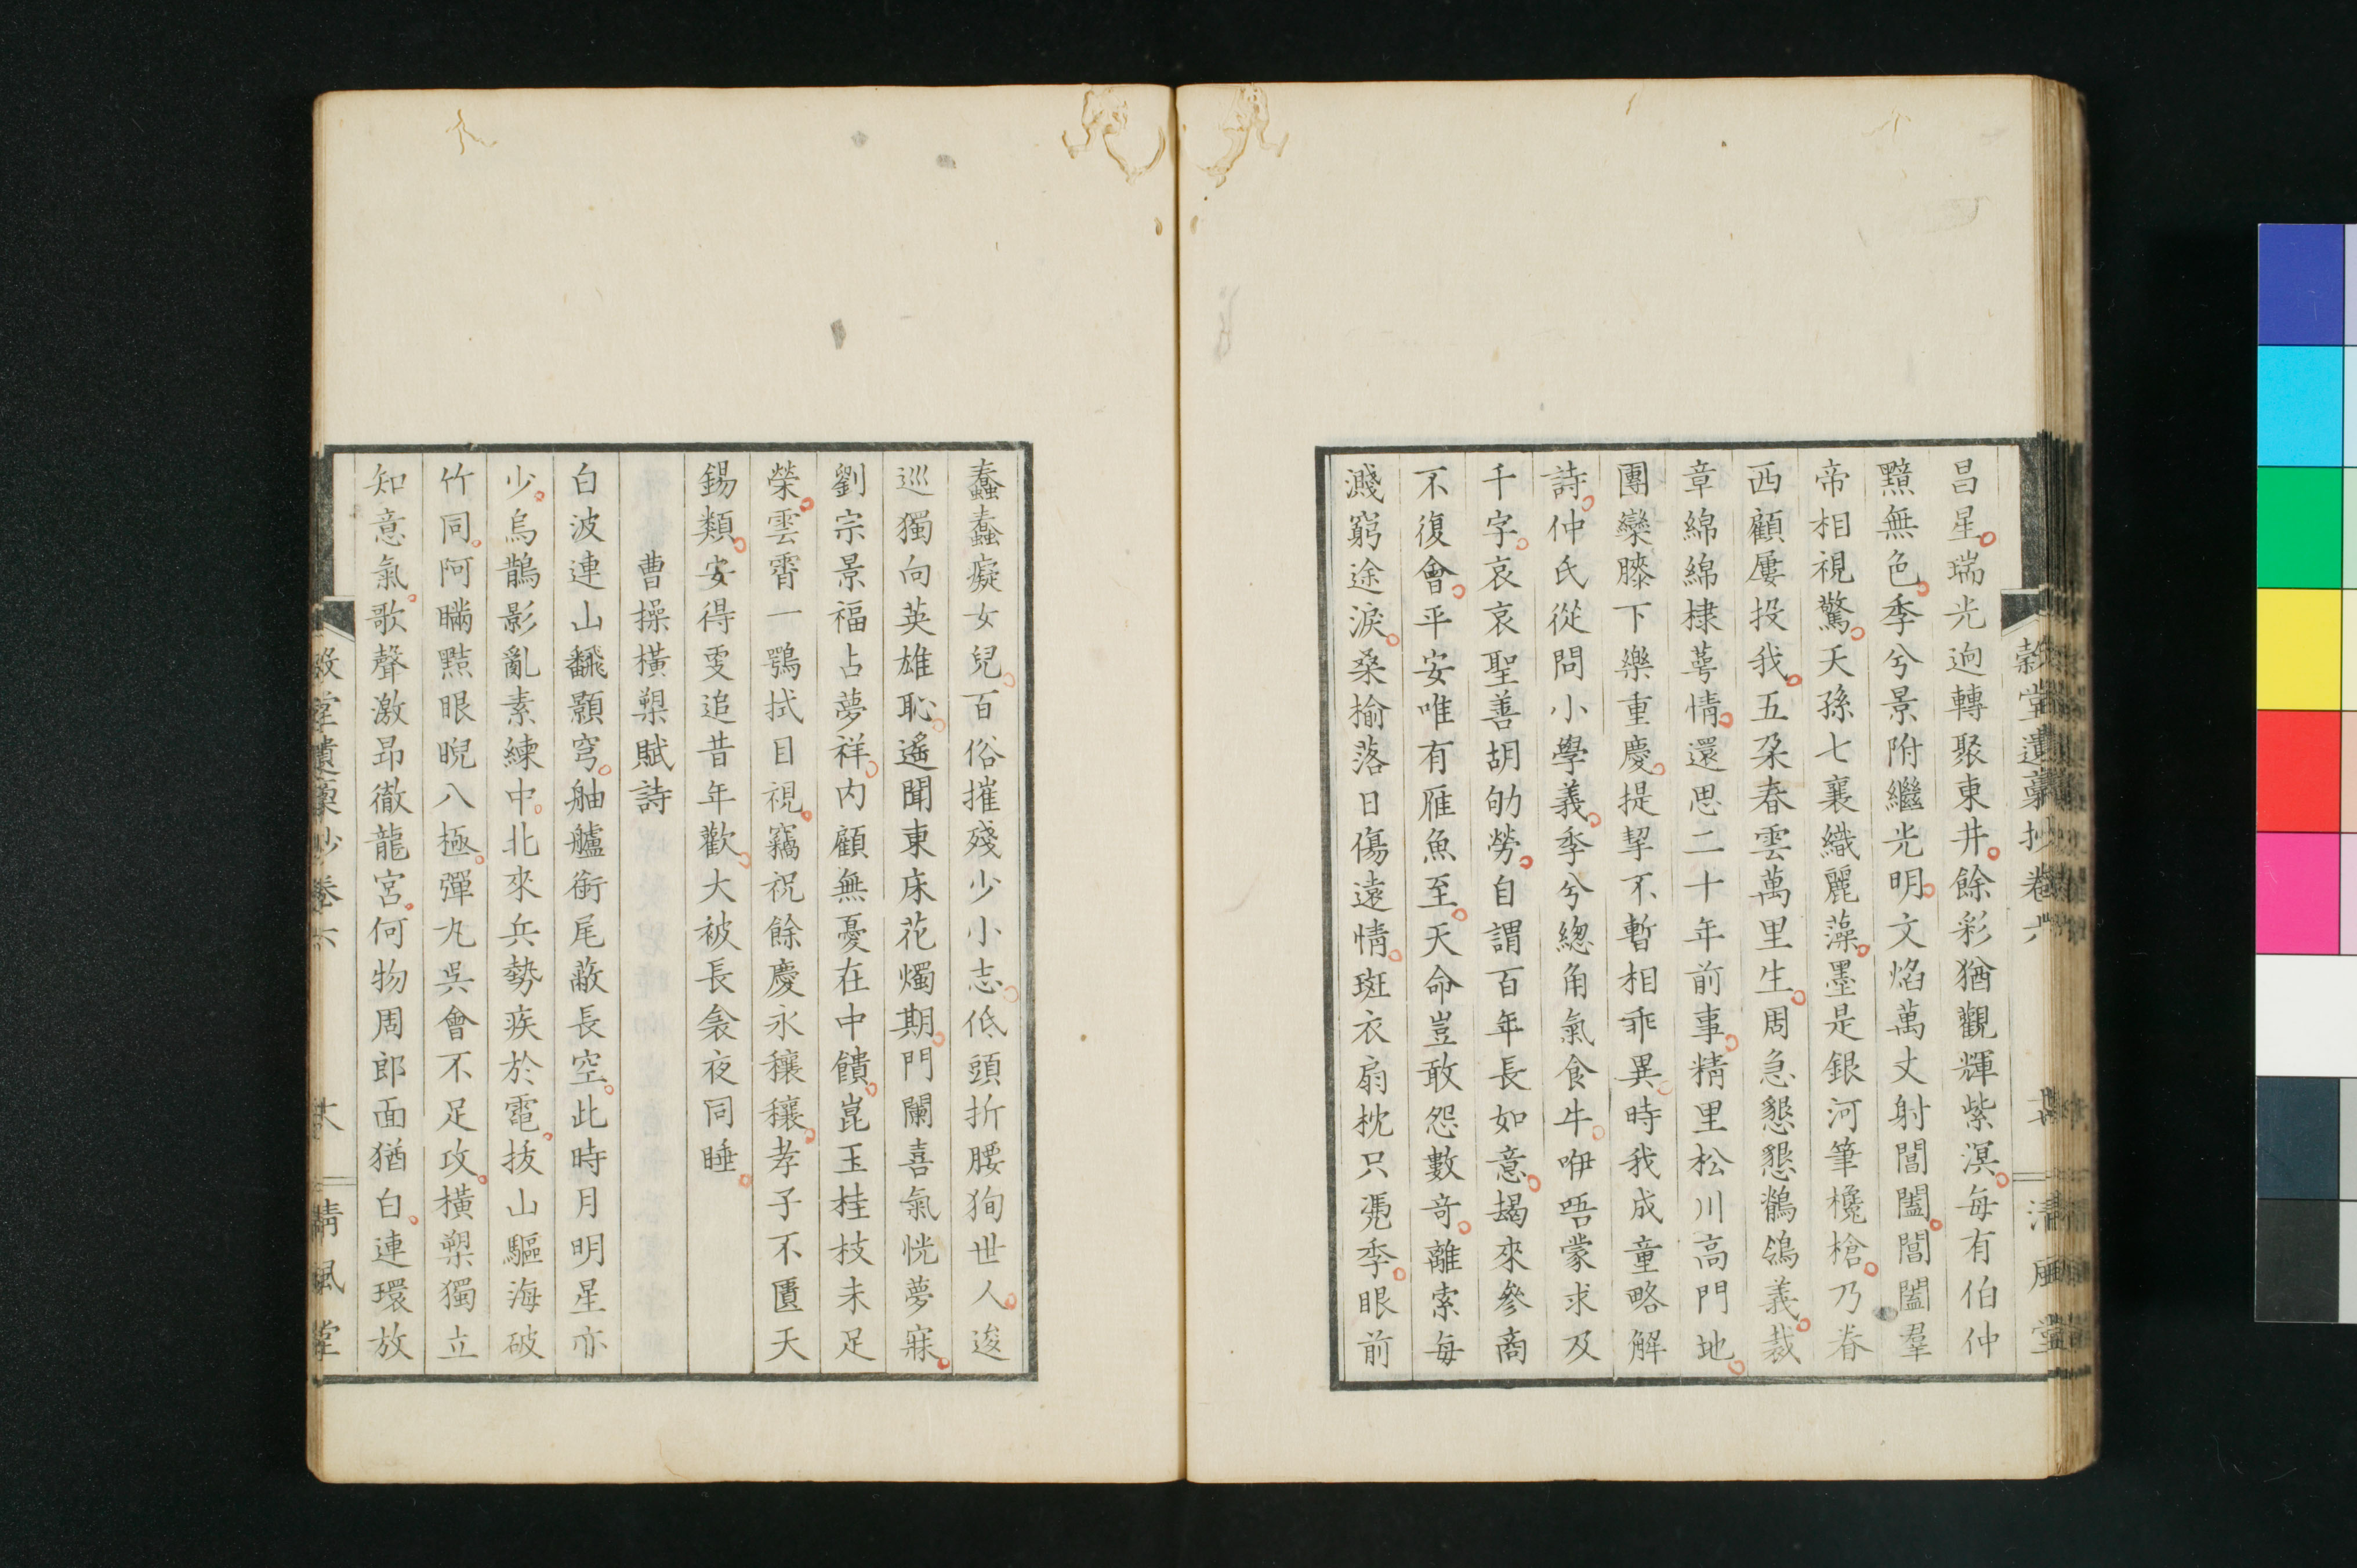 穀堂遺稾抄卷六 清風堂
昌星瑞光迴轉聚東井餘彩猶觀輝紫溟每有伯仲
黯無色季兮景附繼光明文焰萬丈射閶闔閶闔羣
帝相視驚天孫七襄織麗藻墨是銀河筆欃槍乃眷
西顧屢投我五朶春雲萬里生周急懇懇鶺鴒義裁
章綿綿棣萼情還思二十年前事精里松川高門地
團欒膝下樂重慶提挈不暫相乖異時我成童略解
詩仲氏從問小學義季兮總角氣食牛咿唔蒙求及
千字哀哀聖善胡劬勞自謂百年長如意朅來參商
不復會平安唯有雁魚至天命豈敢怨數奇離索每
濺窮途淚桑揄落日傷遠情斑衣扇枕只凴季眼前
蠢蠢癡女兒百俗摧殘少小志低頭折腰狥世人逡
巡獨向英雄恥遙聞東床花燭期門闌喜氣恍夢寐
劉宗景福占夢祥内顧無憂在中饋崑玉桂枝未足
榮雲霄一鶚拭目視竊祝餘慶永穰穰孝子不匱天
錫類安得雯追昔年歡大被長衾夜同睡
曹操橫槊賦詩
白波連山飜顥穹舳艫銜尾蔽長空此時月明星亦
少烏鵲影亂素練中北來兵勢疾於電拔山驅海破
竹同阿瞞黠眼睨八極彈丸吳會不足攻橫槊獨立
知意氣歌聲激昂徹龍宮何物周郎面猶白連環放